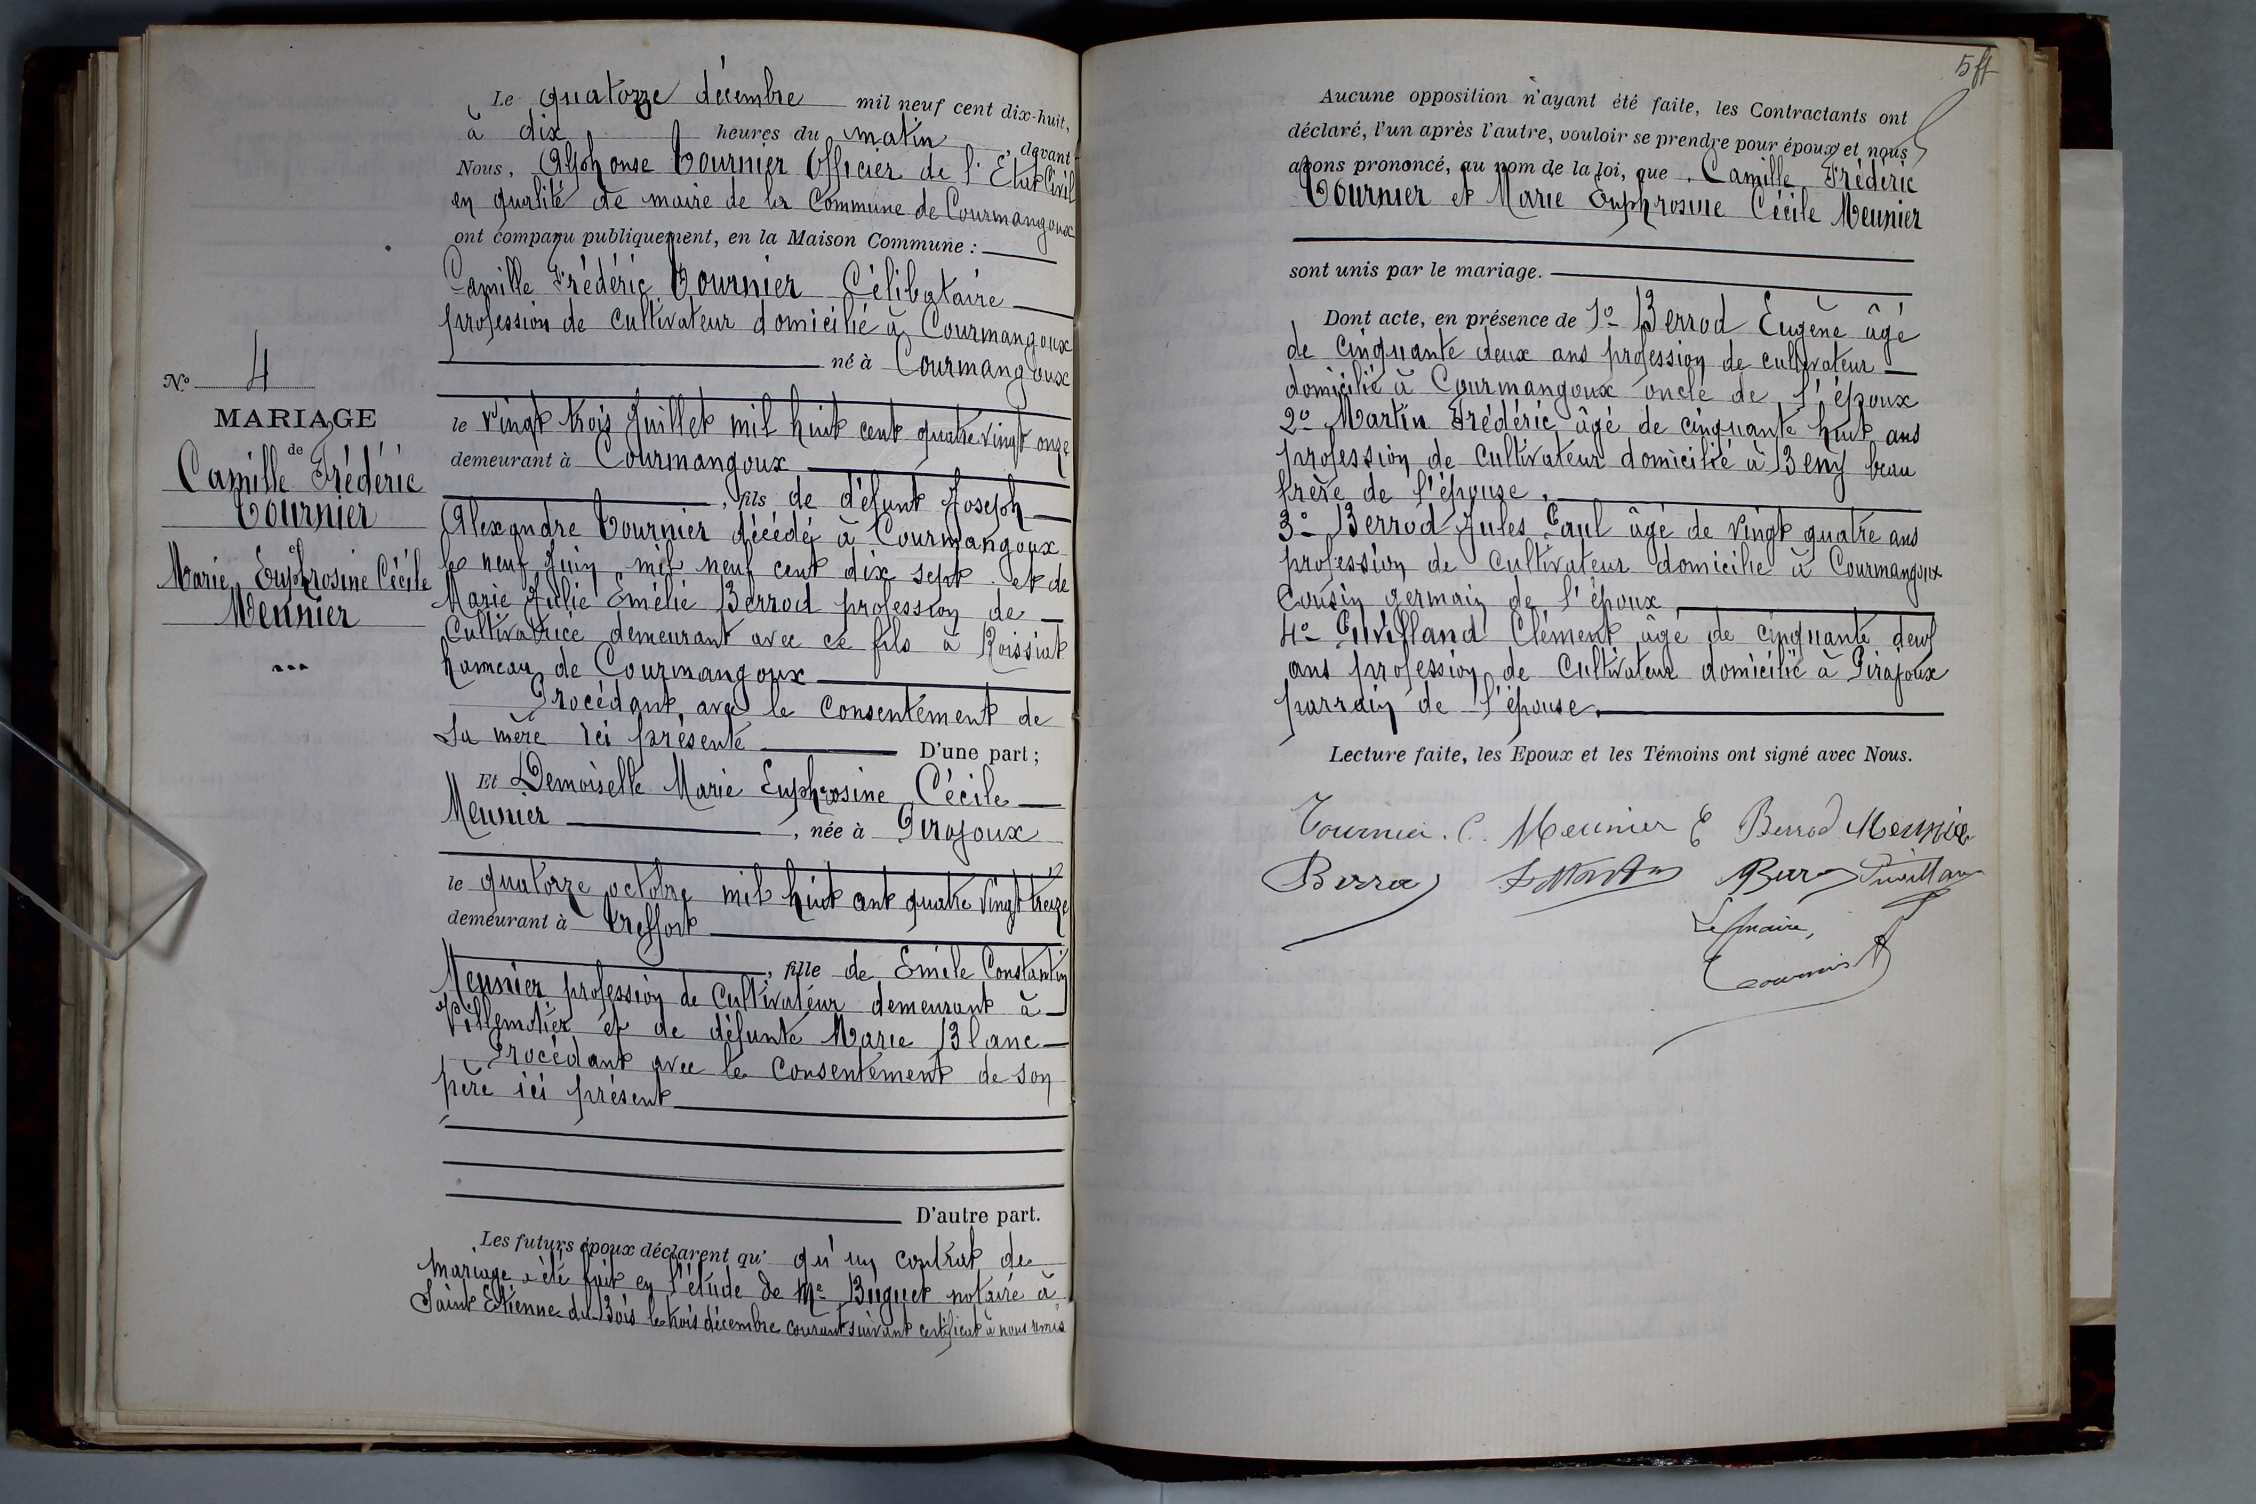 Le quatorze décembre mil neuf cent dix-huit,
à dix heures du matin, devant
Nous, Alphonse Tournier Officier de l'Etat Civil
en qualité de maire de la Commune de Courmangoux
ont comparu publiquement, en la Maison Commune :
Camille Frédéric Tournier Célibataire
profession de cultivateur domicilié à Courmangoux
né à Courmangoux
le vingt trois Juillet mil huit cent quatre vingt onze
demeurant à Courmangoux
, fils de défunt Joseph
Alexandre Tournier décédé à Courmangoux
le neuf Juin mil neuf cent dix sept et de
Marie Julie Emélie Berrod profession de
Cultivatrice demeurant avec ce fils à Roissiat
hameau de Courmangoux
Procédant avec le consentement de
Sa mère ici présente D'une part ;
Et Demoiselle Marie Euphrosine Cécile
Meunier, née à Pirajoux
le quatorze octobre mil huit cent quatre vingt treize
demeurant à Treffort
, fille de Emile Constantin
Meunier profession de Cultivateur demeurant à
Villemotier et de défunte Marie Blanc
Procédant avec le Consentement de son
père ici présent
D'autre part.
Les futurs époux déclarent qu' qu'un contrat de
mariage a été fait en l'étude de Me Buguet notaire à
Saint Etienne du Bois le trois décembre courant suivant certificat à nous remis
No 4
MARIAGE
de
Camille Frédéric
Tournier
et
Marie Euphrosine Cécile
Meunier
Aucune opposition n'ayant été faite, les Contractants ont
déclaré, l'un après l'autre, vouloir se prendre pour époux et nous
avons prononcé, au nom de la loi, que Camille Frédéric
Tournier et Marie Euphrosine Cécile Meunier
sont unis par le mariage.
Dont acte, en présence de 1o Berrod Eugène âgé
de cinquante deux ans profession de cultivateur
domicilié à Courmangoux oncle de l'époux
2o Martin Frédéric âgé de cinquante huit ans
profession de cultivateur domicilié à Beny beau
frère de l'épouse.
3o Berrod Jules Paul âgé de vingt quatre ans
profession de cultivateur domicilié à Courmangoux
Cousin germain de l'époux
4o Puvilland Clément âgé de cinquante deux
ans profession de Cultivateur domicilié à Pirajoux
parrain de l'épouse.
Lecture faite, les Epoux et les Témoins ont signé avec Nous.
Tournier. C. Meunier E Berrod Meunier
Berrod Martin Berrod Puvilland
Le maire,
Tournier A